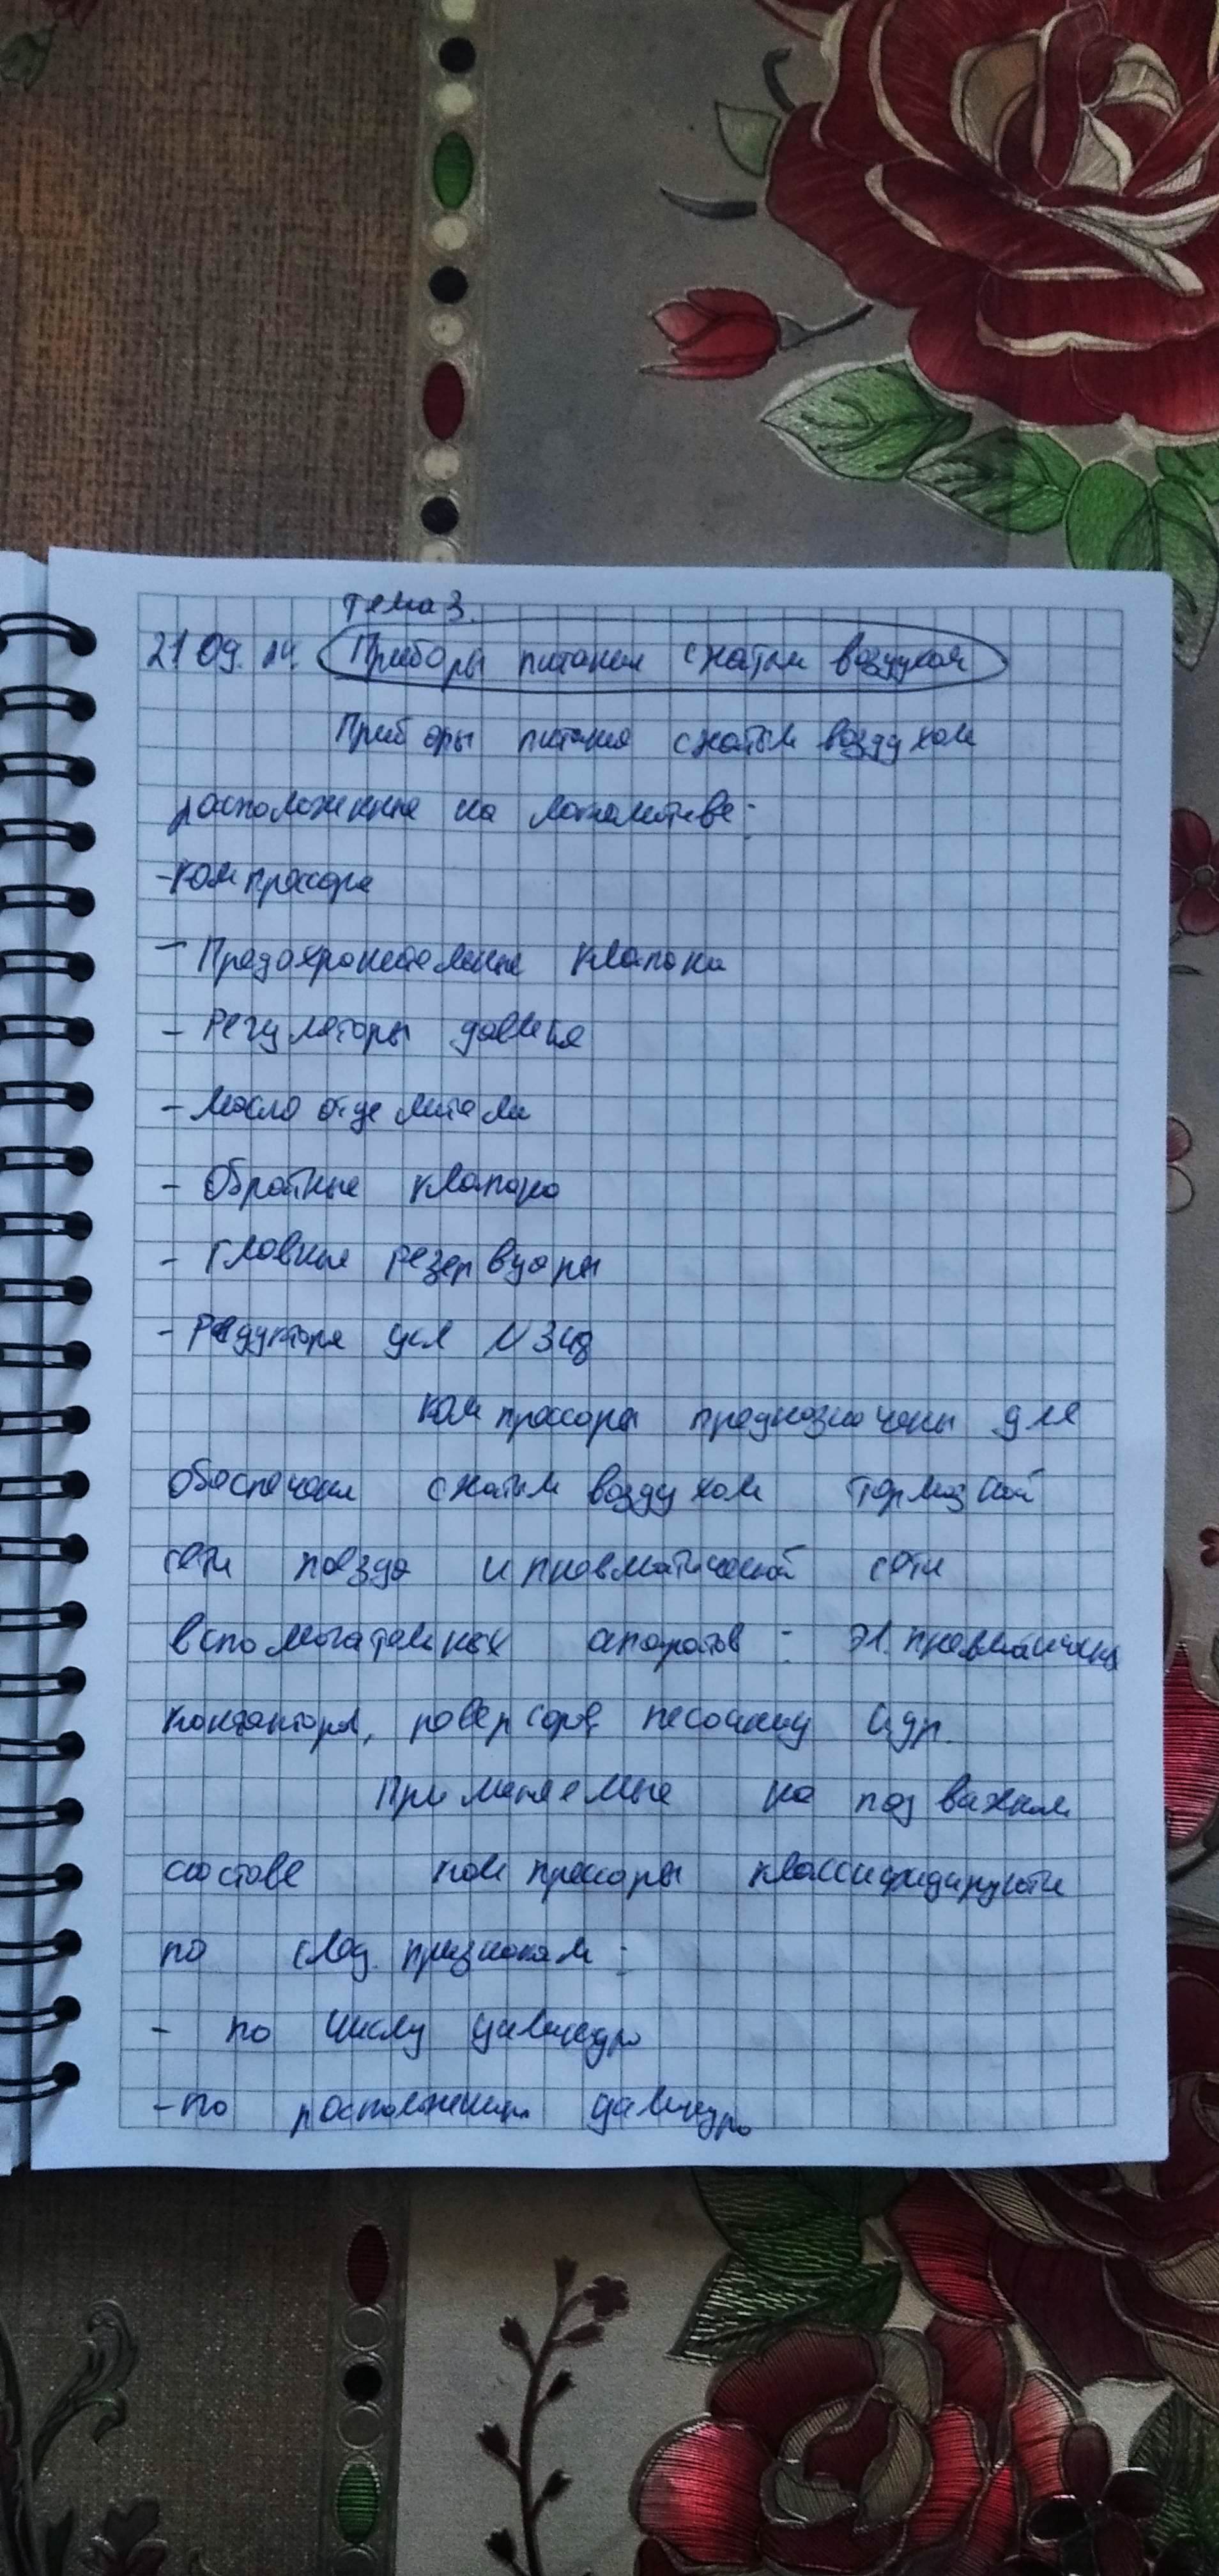 Тема 3.
21 09. 24. Приборы питания сжатым воздухом
Приборы питания сжатым воздухом
расположенные на локомотиве:
- Компрессоры
- Предохранительные клапана
- Регуляторы давления
- Маслоотделители
- Обратные клапана
- Главные резервуары
- Редуктора усл N 348
Компрессоры предназначены для
обеспечения сжатым воздухом тормозной
сети поезда и пневматической сети
вспомогательных апаратов: эл. пневматических
контактора, реверсора, песочницу и др.
Применяемые на подвижном
составе компрессоры классифицируются
по след. признакам:
- по числу цилиндров
- по расположению цилиндров